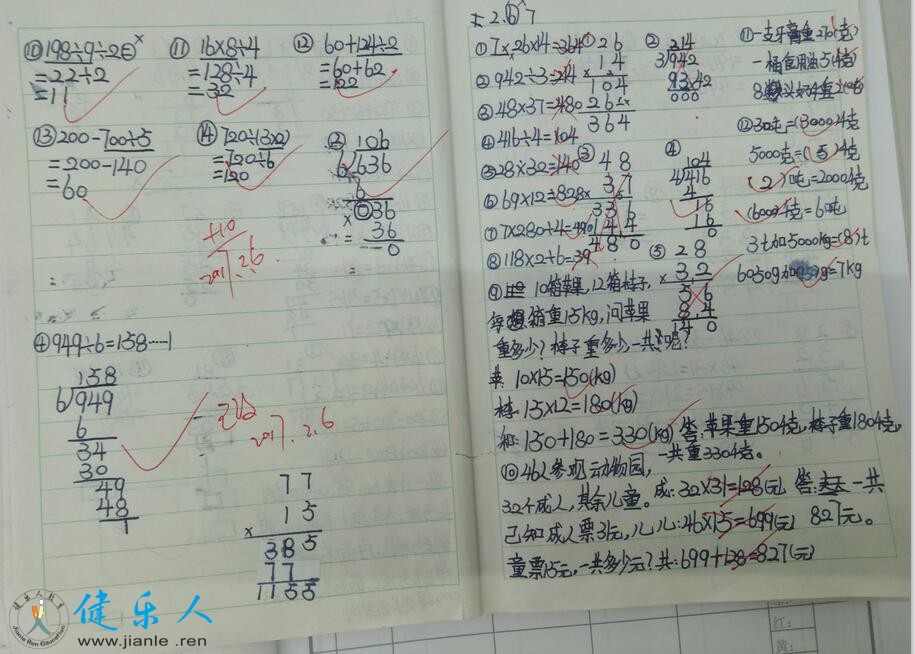 ⑩ 198÷9÷2
=22÷2
=11
⑪ 16×8÷4
=128÷4
=32
⑫ 60+124÷2
=60+62
=122
⑬ 200-700÷5
=200-140
=60
⑭ 720÷(3×2)
=720÷6
=120
106
6 636
6
036
36
0
2017.2.6
④ 949÷6=158……1
158
6 949
6
34
30
49
48
1
2017.2.6
77
× 15
385
77
1155
2.6
①7×26×14=364
②942÷3=214
③48×37=480
④416÷4=104
⑤28×32=140
⑥69×12=828
⑦7×280÷4=490
⑧118×2÷6=39
① 26
14
104
26
364
② 214
3 942
③ 48
37
331
144
480
④ 104
4 416
4
16
16
0
⑤ 28
× 32
56
84
140
⑪一支牙膏重270(克)
一桶食用油5(千克)
⑫3吨=(3000)千克
5000克=(5)千克
(2)吨=2000千克
(6000)千克=6吨
3t加5000kg=(8)t
⑨ 10箱苹果,12箱桔子,
每箱重15kg,问苹果
重多少?桔子重多少,一共呢?
苹:10×15=150(kg)
桔:15×12=180(kg)
和:150+180=330(kg) 答:苹果重150千克,桔子重180千克,
一共重330千克。
⑩46人参观动物园,
32个成人,其余儿童。成:32×31=128(元) 答: 一共
已知成人票31元,儿 儿:46×15=699(元) 827元。
童票15元,一共多少元?共:699+128=827(元)
健乐人教育
Jianle Ren Education
健乐人
www.jianle.ren
红:
黄: